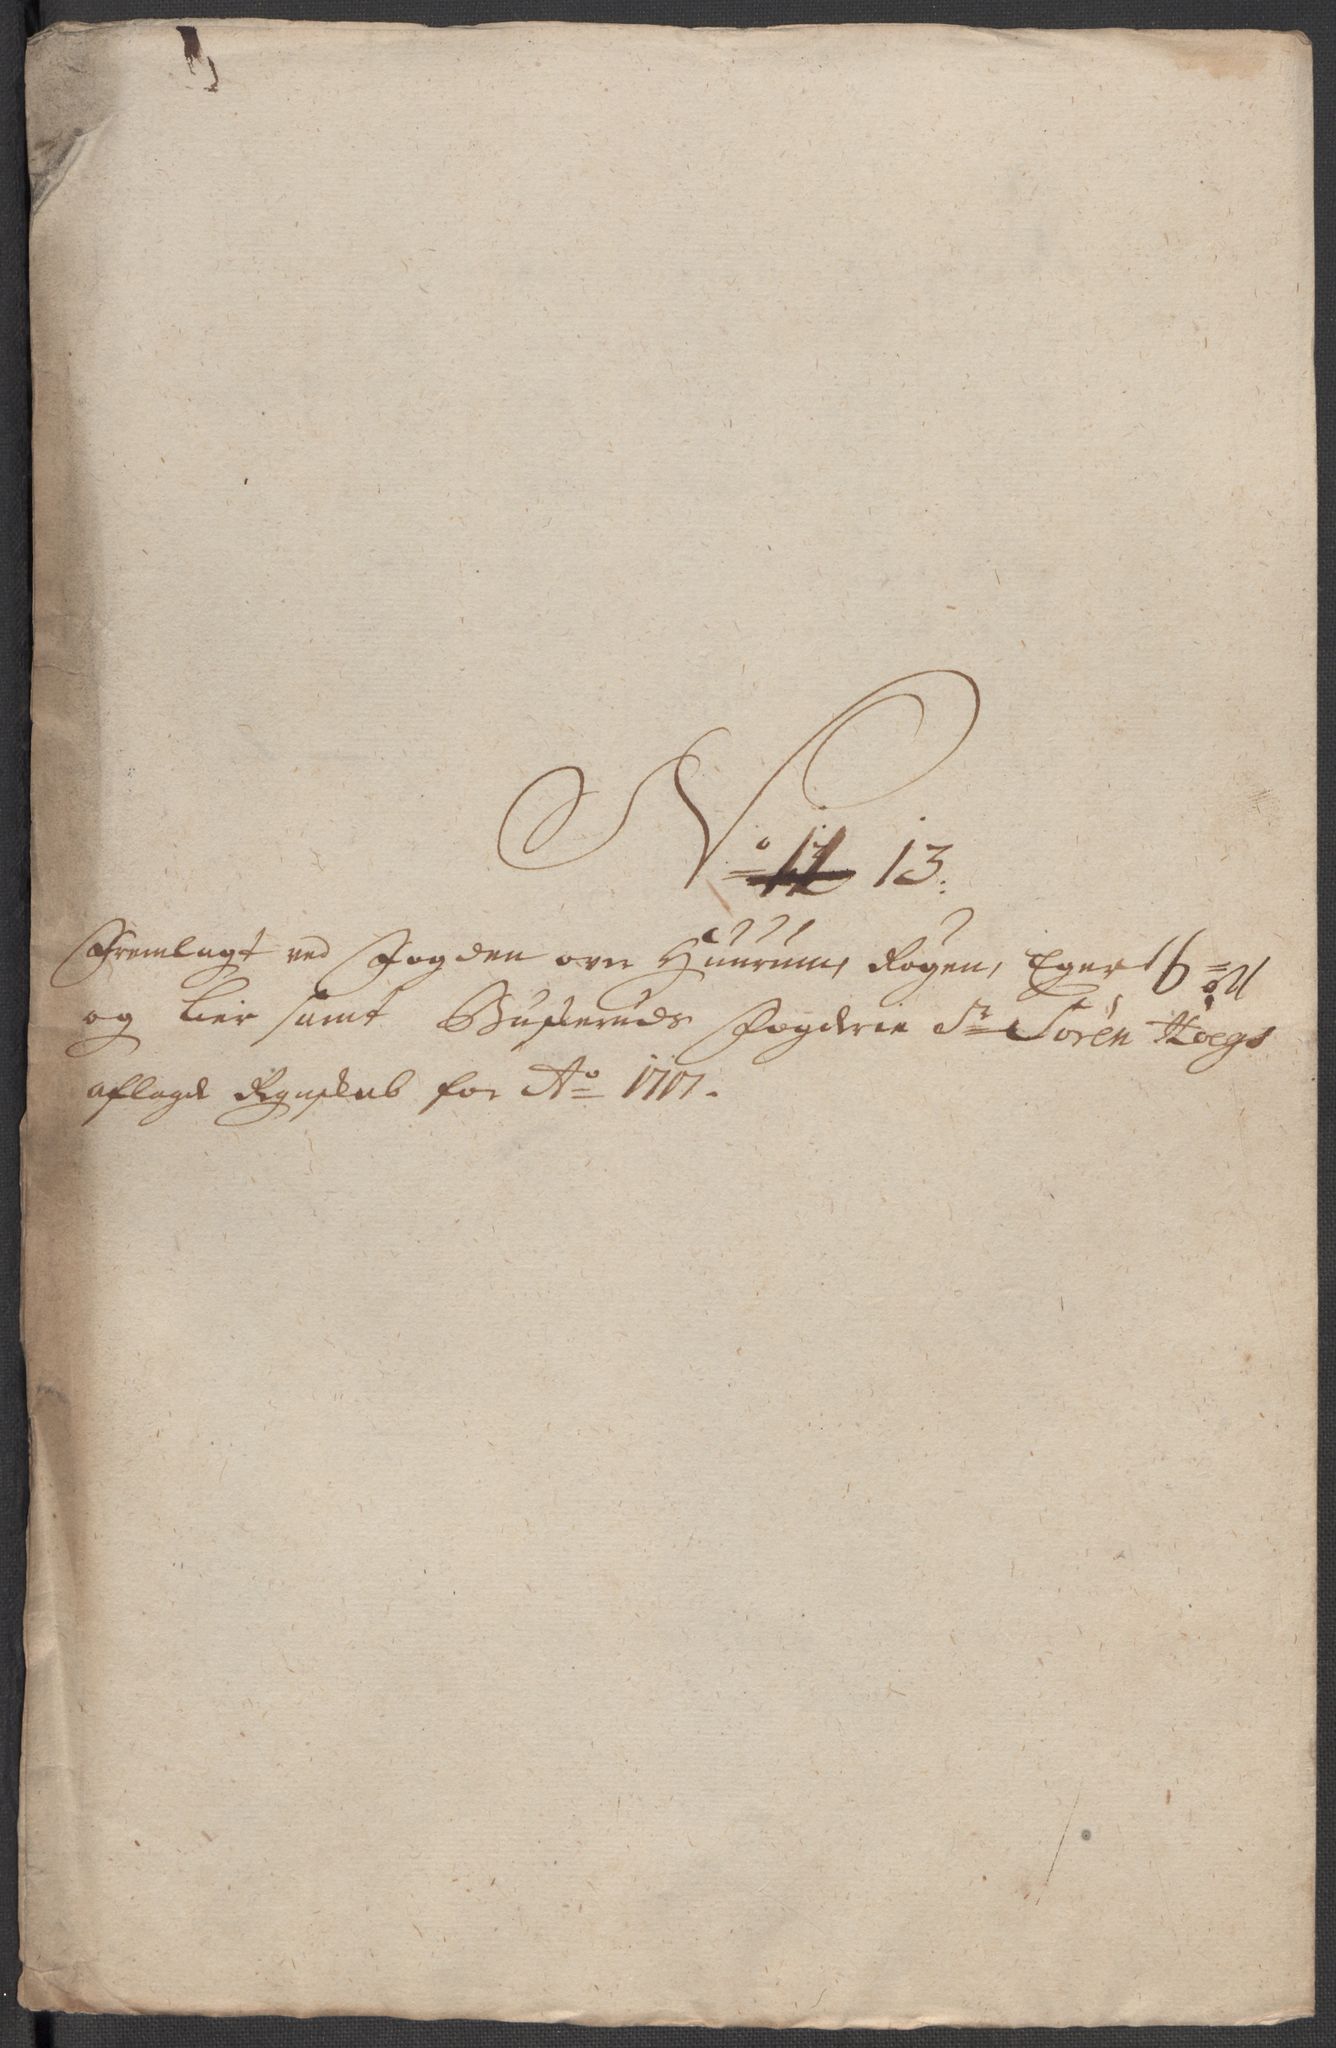 No 13.
Fremlagt ved Fogden over Huurum, Røgen, Eger
og Lier samt Buskeruds Fogderie Sr Sören Hoegs
aflagde Regnskab for Ao 1717.